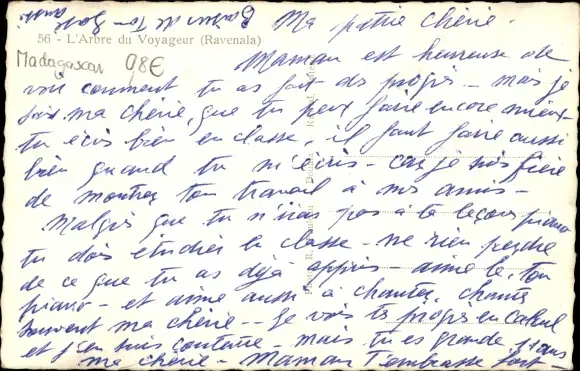 Ma petite chérie.
56 - L'Arbre du Voyageur (Ravenala)
Madagascar 98€
Maman est heureuse de
voir comment tu as fait des progrès - mais je
sais ma chérie, que tu peux faire encore mieux
tu écris bien en classe, il faut faire aussi
bien quand tu m'écris - car je suis fière
de montrer ton travail à nos amis -
Malgré que tu n'iras pas à ta leçon piano
tu dois étudier en classe - ne rien perdre
de ce que tu as déjà appris - aime le, ton
piano - et aime aussi à chanter, chante
souvent ma chérie -- Je vois tes progrès en calcul
et j'en suis contente - mais tu es grande 11 ans
ma chérie - Maman t'embrasse fort -
Baiser de Ton
aussi